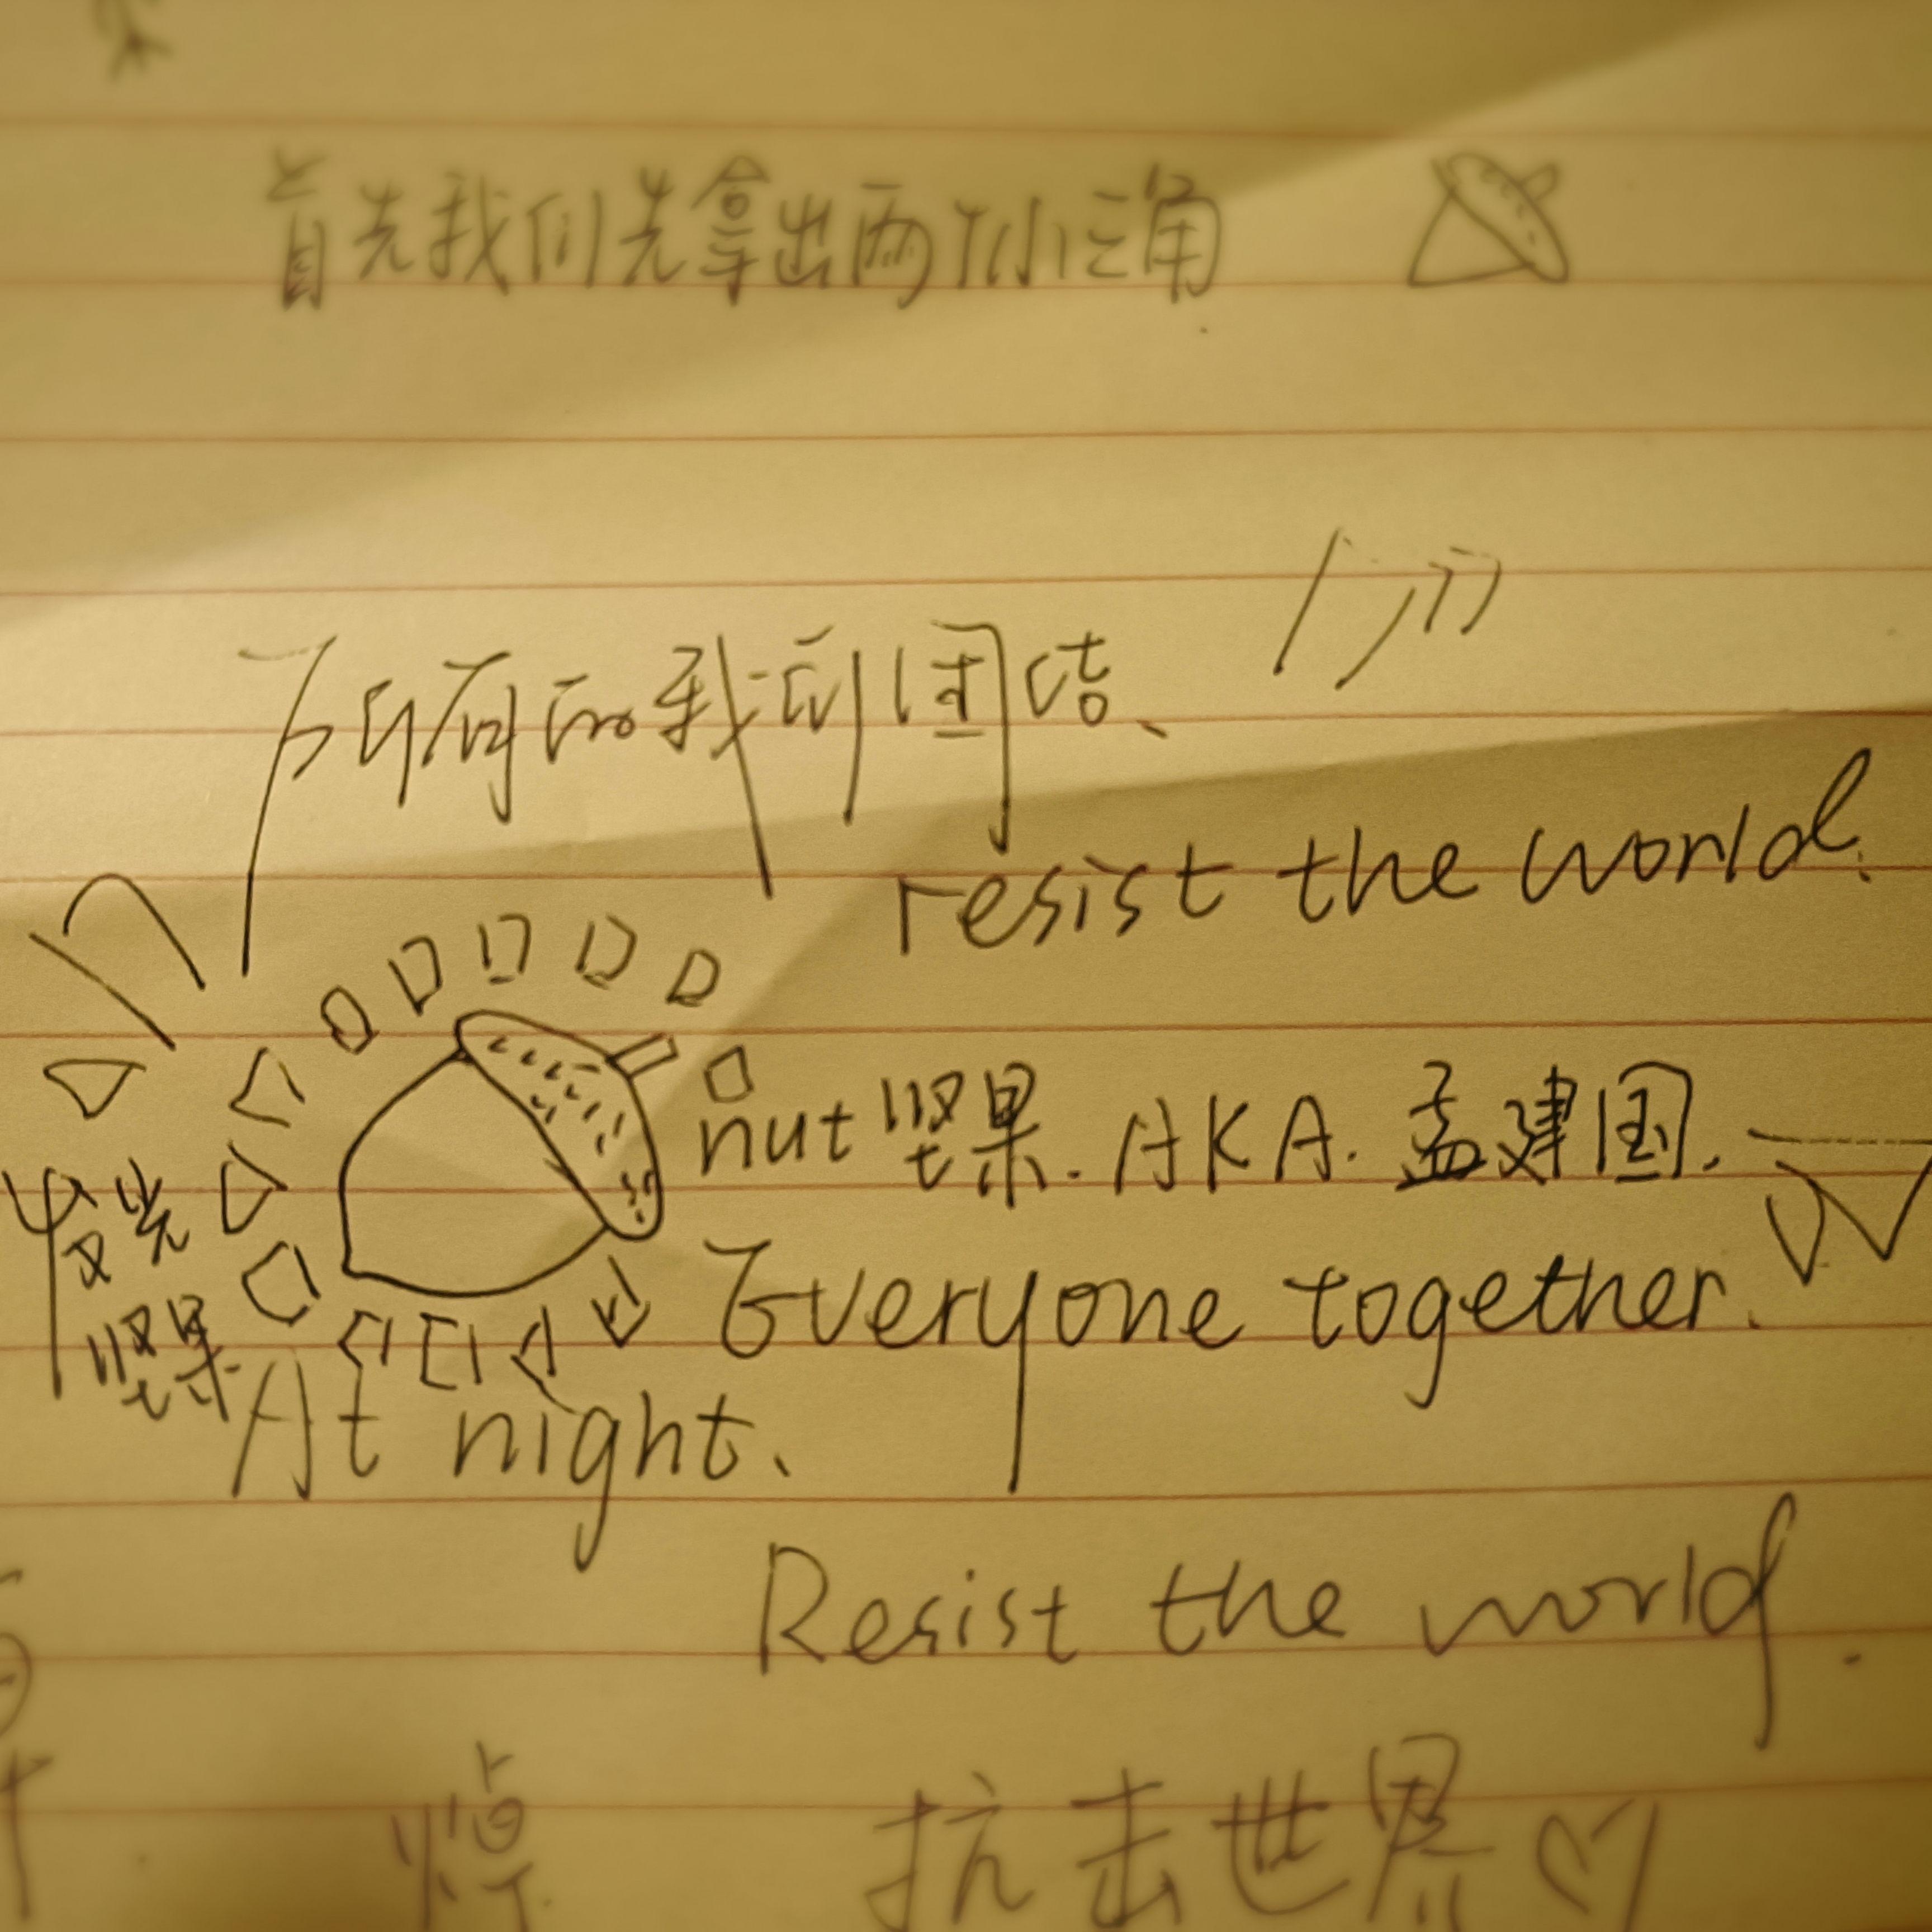 首先我们先拿出两个小三角
所有的我们团结、
resist the world.
nut 坚果. AKA. 孟建国.
发光
坚果.
Everyone together.
At night.
Resist the world.
抗击世界